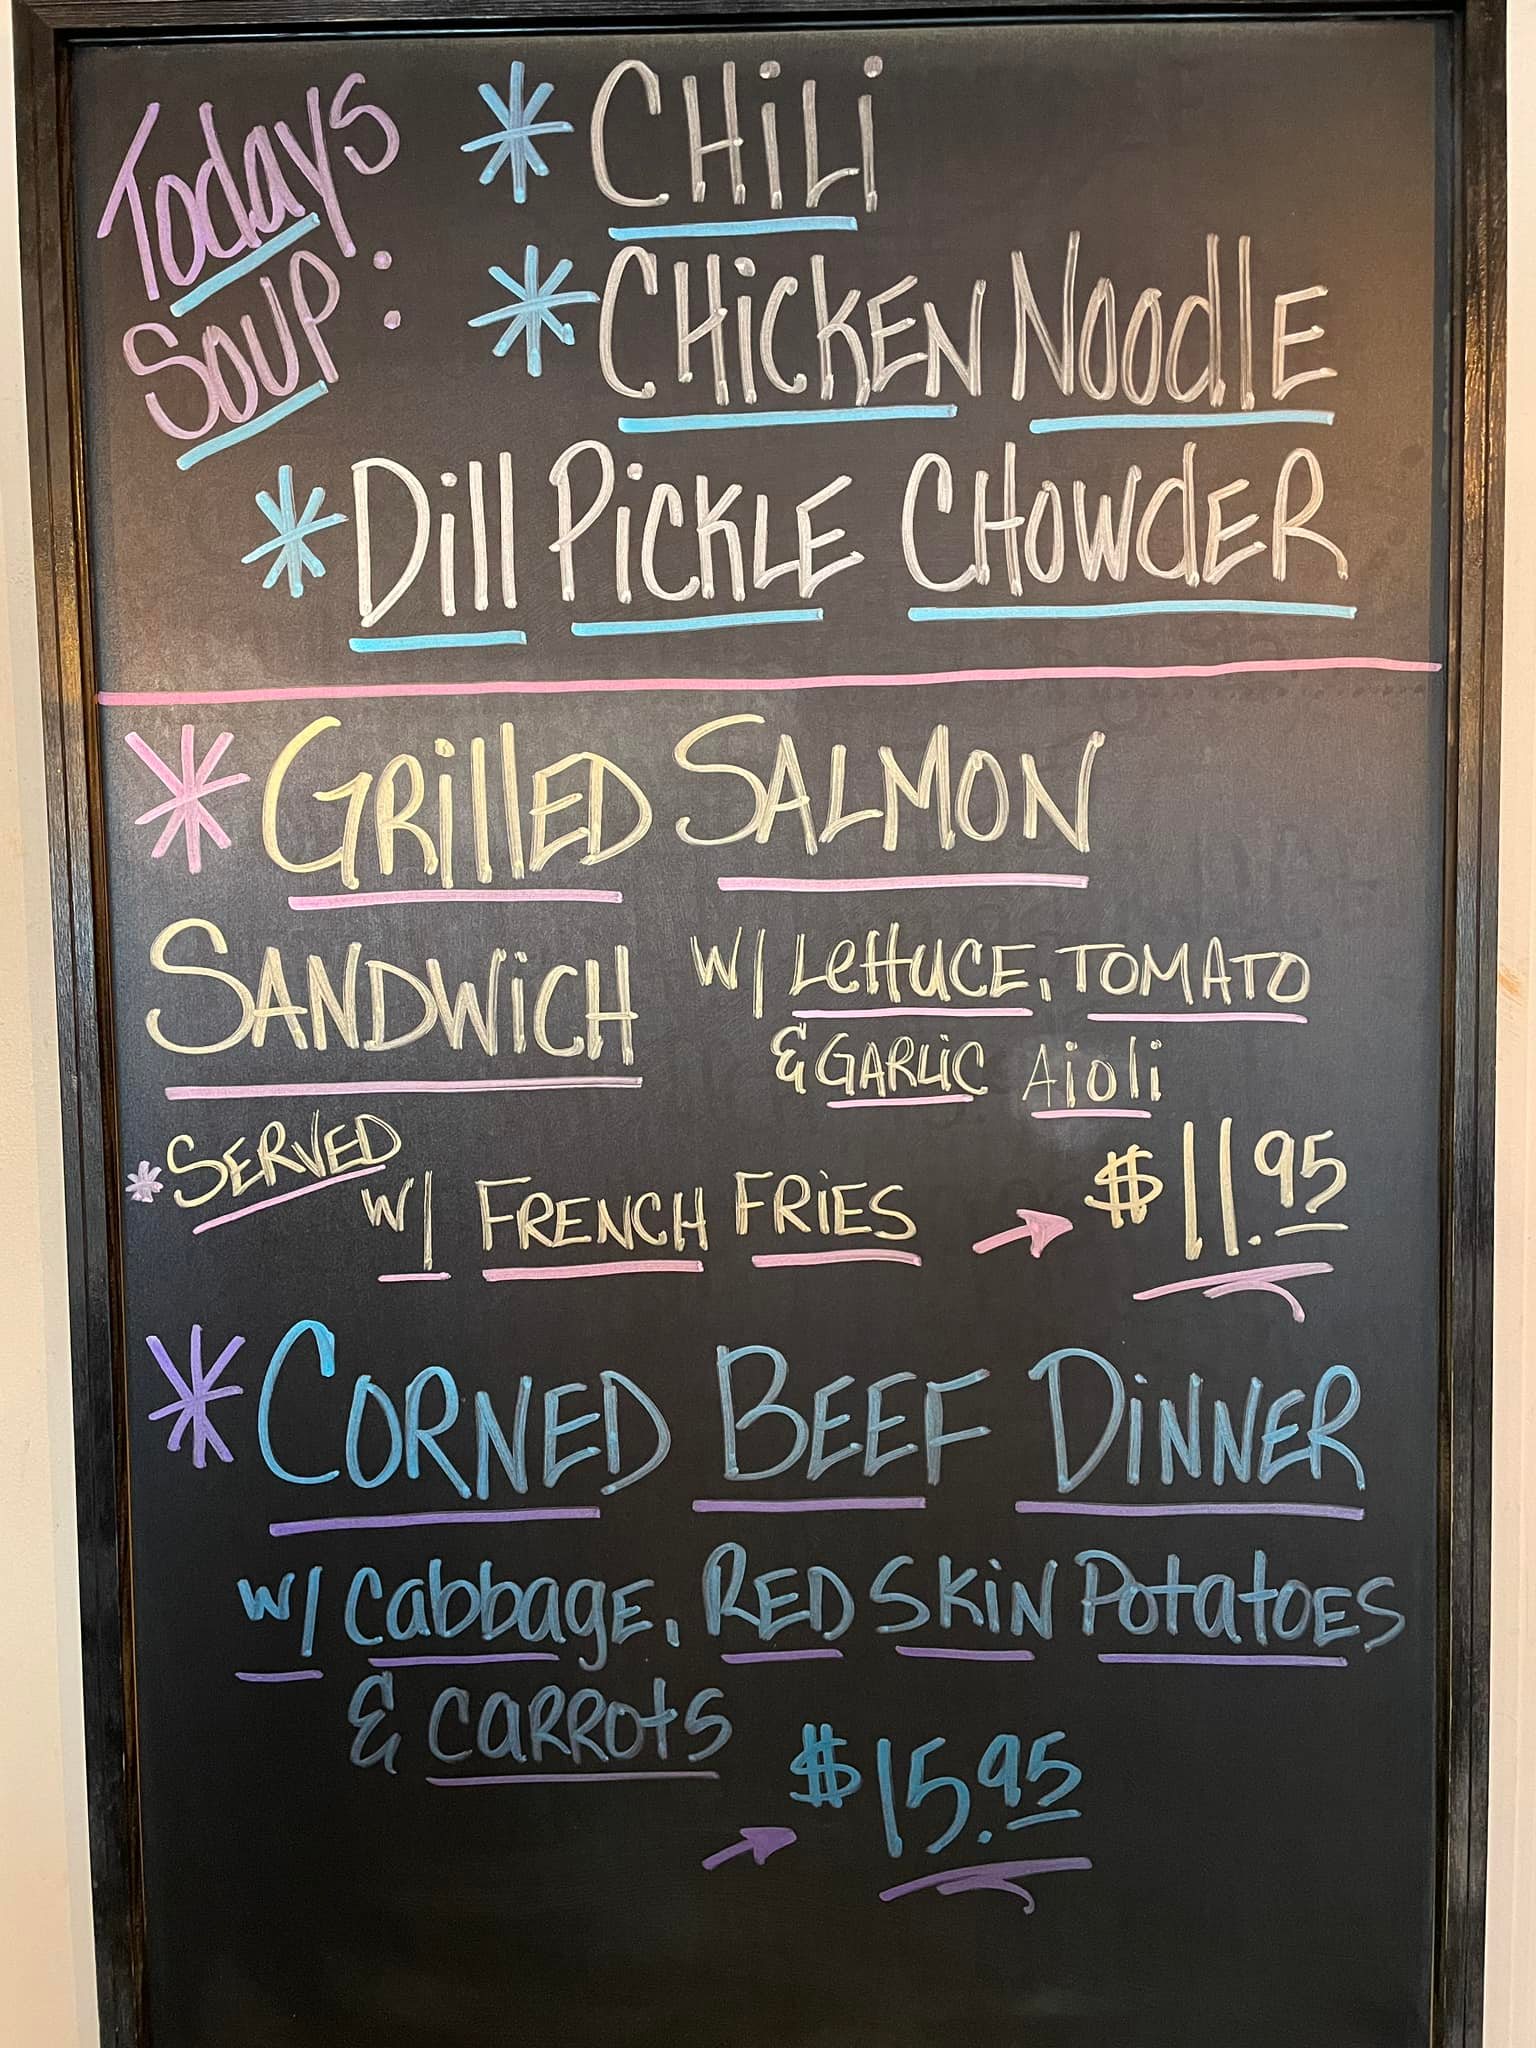 Todays
Soup:
* CHiLi
* CHiCKEN NOOdlE
* Dill PiCKLE CHOWdER
* GRillED SALMON
SANDWiCH w/ LettuCE, TOMATO
& GARLiC Aioli
* SERVED
w/ FRENCH FRiES → $11.95
* CORNED BEEF DiNNER
w/ CabbagE, RED SKiN PotatOES
& CARROtS
→ $15.95